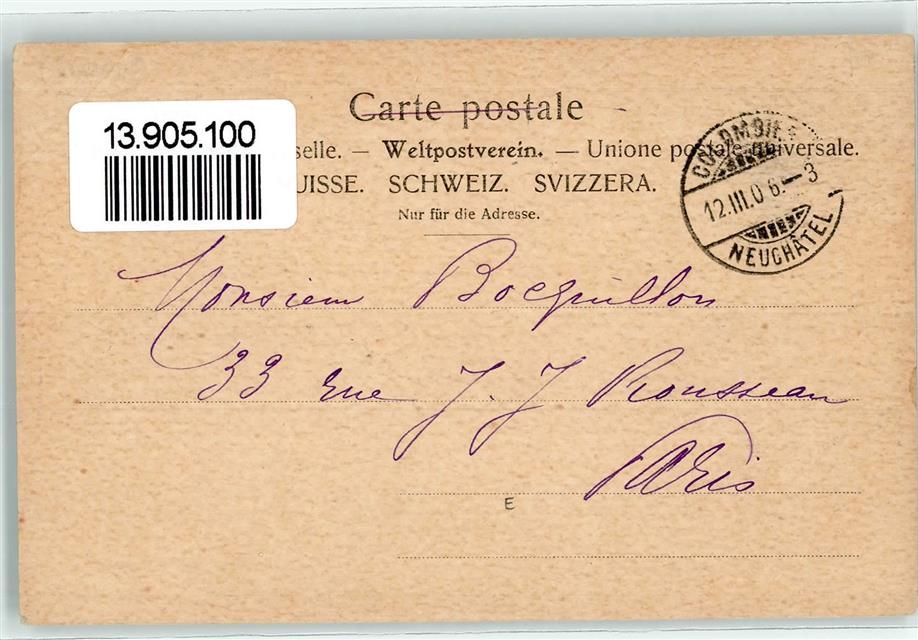 Carte postale
13.905.100
selle. — Weltpostverein. — Unione postale universale.
UISSE. SCHWEIZ. SVIZZERA.
Nur für die Adresse.
COLOMBIER
12.III.06.—3
NEUCHÂTEL
Monsieur Bocquillon
33 rue J. J Rousseau
Paris
E